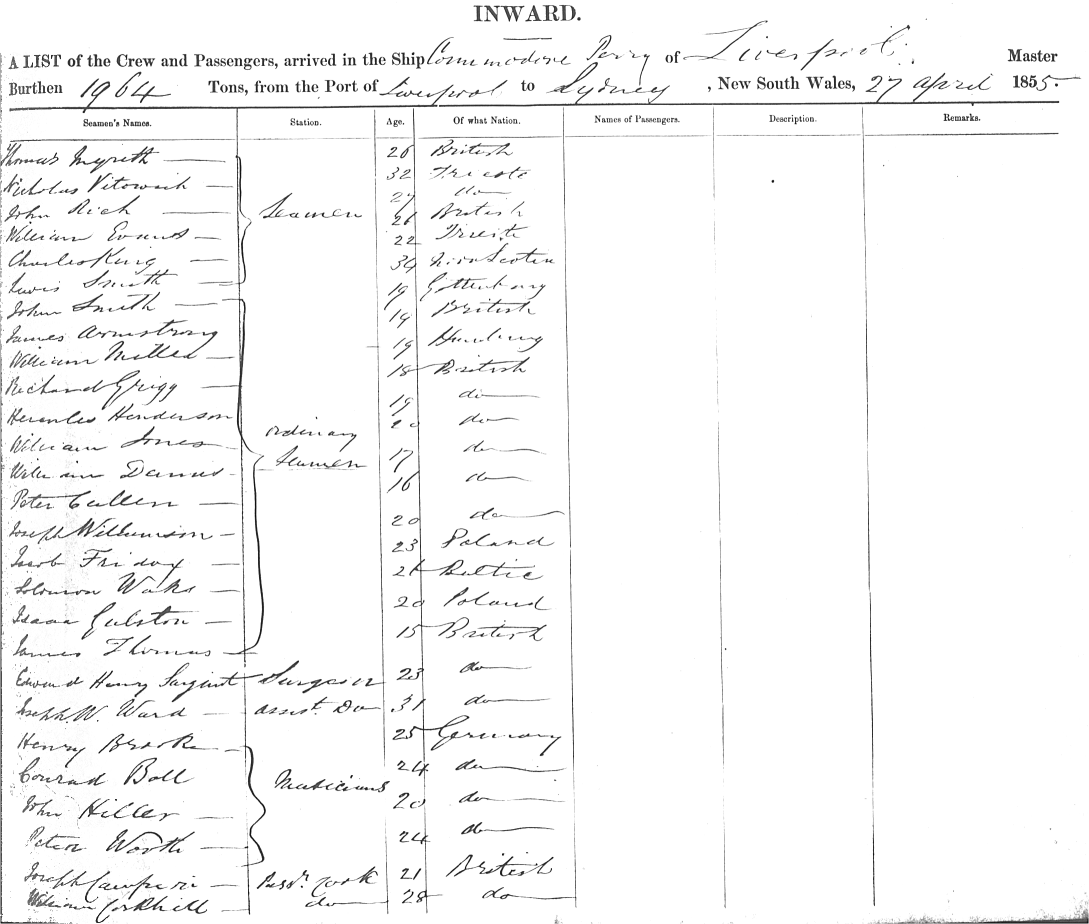 INWARD.
A LIST of the Crew and Passengers, arrived in the Ship Commodore Perry of Liverpool Master
Burthen 1964 Tons, from the Port of Liverpool to Sydney, New South Wales, 27 April 1855.
Seamen's Names. Station. Age. Of what Nation. Names of Passengers. Description. Remarks.
Thomas 26 British
Nicholas 32
John Rich Seamen 27 do
William Evans 26 British
Charles King 22 Trieste
Lewis Smith 34 Nova Scotia
John Smith 19 Gottenburg
James Armstrong 19 British
William 19 Hamburg
Richard Grigg 18 British
Hercules Henderson 19 do
William Jones ordinary 20 do
William Seamen 17 do
Peter Cullen 16 do
Joseph Williamson 20 do
Jacob Friday 23 Poland
Solomon Waks Baltic
Isaac Gulston 20 Poland
James Thomas 15 British
Edward Henry Sargent Surgeon 23 do
Joseph W. Ward assist. Do 31 do
Henry Brooke 25 Germany
Conrad Boll Musicians 24 do
John Hiller 20 do
Peter Worth 24 do
Joseph Passr. Cook 21 British
William Corkhill do 28 do